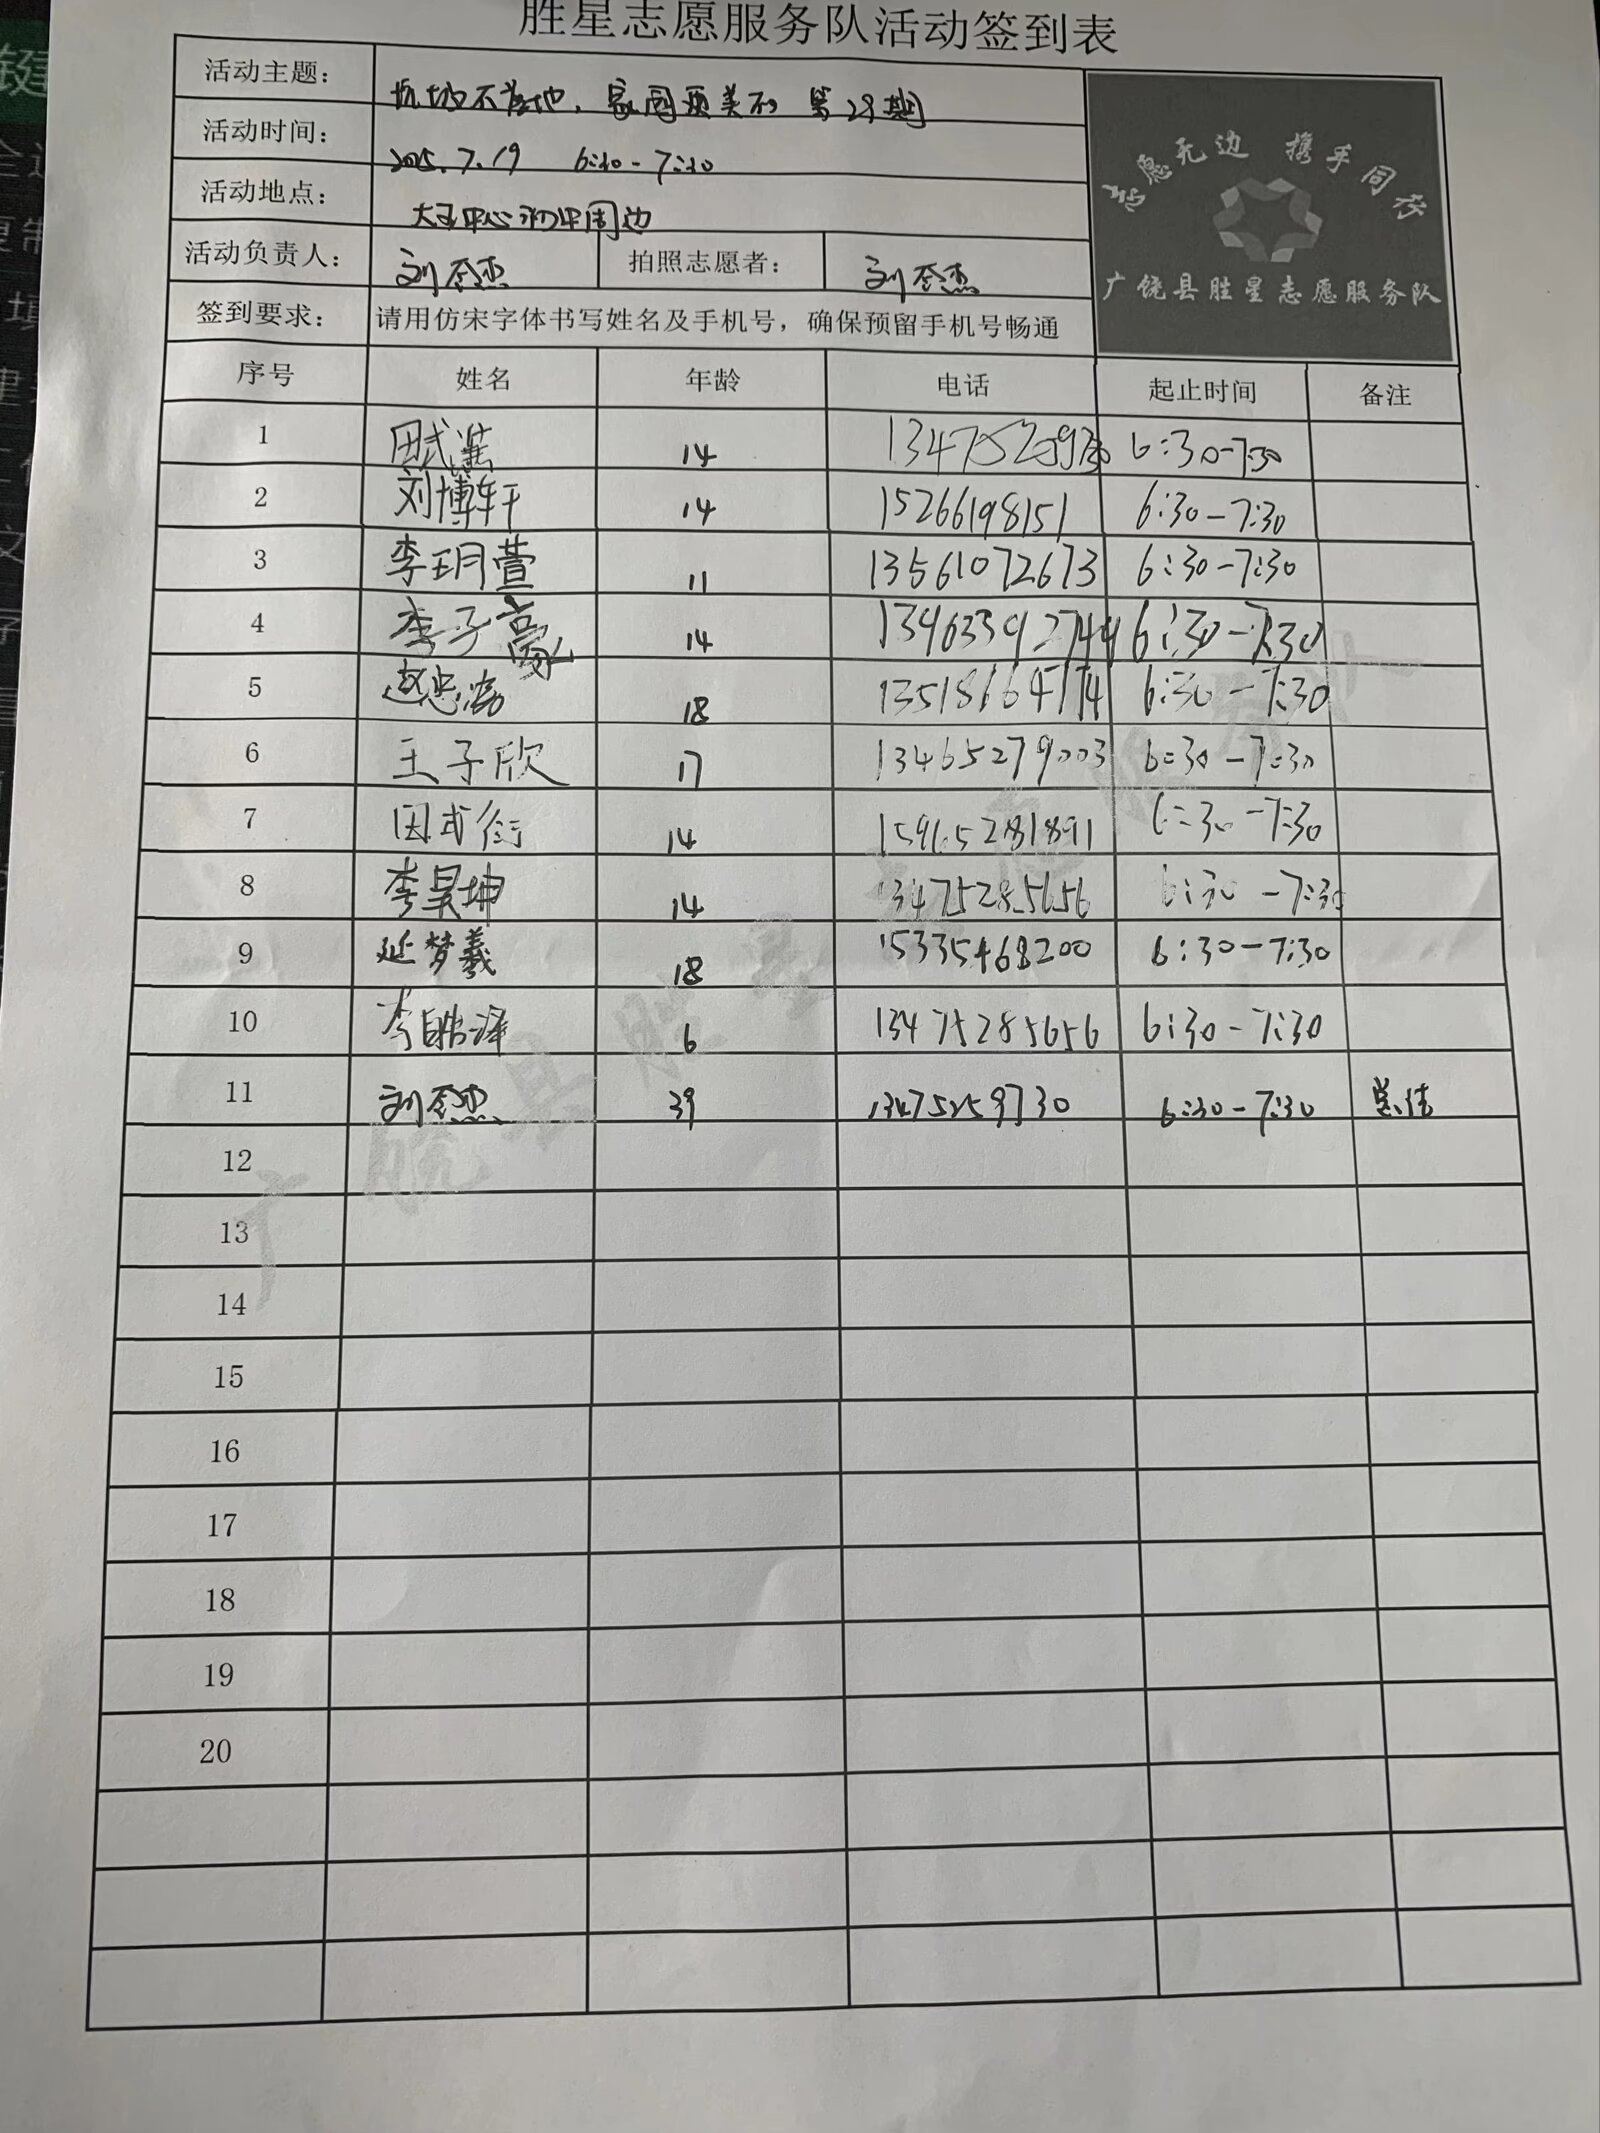 胜星志愿服务队活动签到表
活动主题： 垃圾不落地，家园更美丽 第29期
活动时间： 2025.7.19 6:30-7:30
活动地点： 大王中心初中周边
活动负责人： 刘 杰 拍照志愿者： 刘 杰
签到要求： 请用仿宋字体书写姓名及手机号，确保预留手机号畅通
志愿无边 携手同行
广饶县胜星志愿服务队
序号 姓名 年龄 电话 起止时间 备注
1 田式 14 6:30-7:30
2 刘博轩 14 15266198151 6:30-7:30
3 李玥萱 11 13561072673 6:30-7:30
4 李子豪 14 13963392744 6:30-7:30
5 赵忠 18 13518664774 6:30-7:30
6 王子欣 17 13465279003 6:30-7:30
7 田式衍 14 15965281891 6:30-7:30
8 李昊坤 14 13475285656 6:30-7:30
9 延梦羲 18 15335468200 6:30-7:30
10 李皓泽 6 13475285656 6:30-7:30
11 刘 杰 39 13475259730 6:30-7:30 总结
12
13
14
15
16
17
18
19
20
广饶县胜星志愿服务队